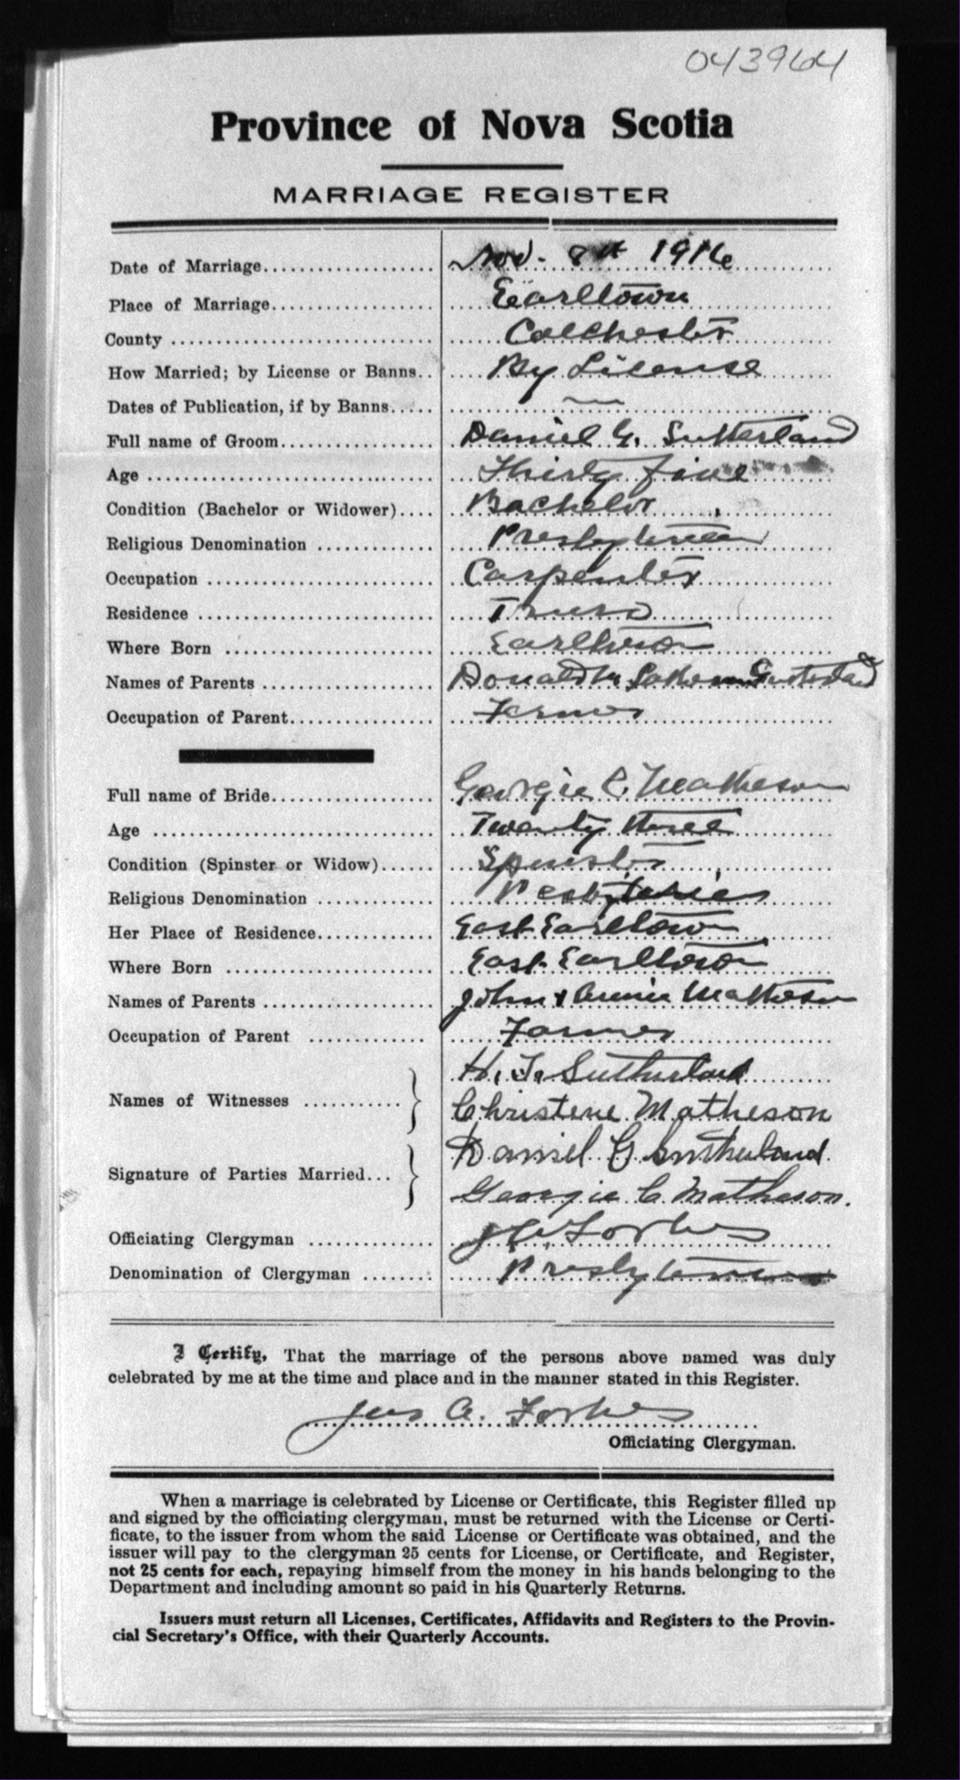 043964
Province of Nova Scotia
MARRIAGE REGISTER
Date of Marriage Nov. 8th 1916
Place of Marriage Earltown
County Colchester
How Married; by License or Banns By License
Dates of Publication, if by Banns —
Full name of Groom Daniel G. Sutherland
Age Thirty five
Condition (Bachelor or Widower) Bachelor
Religious Denomination Presbyterian
Occupation Carpenter
Residence Truro
Where Born Earltown
Names of Parents Donald Sutherland
Occupation of Parent Farmer
Full name of Bride Georgie C. Matheson
Age Twenty three
Condition (Spinster or Widow) Spinster
Religious Denomination Presbyterian
Her Place of Residence East Earltown
Where Born East Earltown
Names of Parents John & Annie Matheson
Occupation of Parent Farmer
H. F. Sutherland
Names of Witnesses
Christene Matheson
Daniel G Sutherland
Signature of Parties Married
Georgie C. Matheson.
Officiating Clergyman J A Forbes
Denomination of Clergyman Presbyterian
I Certify, That the marriage of the persons above named was duly
celebrated by me at the time and place and in the manner stated in this Register.
Jas A. Forbes
Officiating Clergyman.
When a marriage is celebrated by License or Certificate, this Register filled up
and signed by the officiating clergyman, must be returned with the License or Certi-
ficate, to the issuer from whom the said License or Certificate was obtained, and the
issuer will pay to the clergyman 25 cents for License, or Certificate, and Register,
not 25 cents for each, repaying himself from the money in his hands belonging to the
Department and including amount so paid in his Quarterly Returns.
Issuers must return all Licenses, Certificates, Affidavits and Registers to the Provin-
cial Secretary's Office, with their Quarterly Accounts.